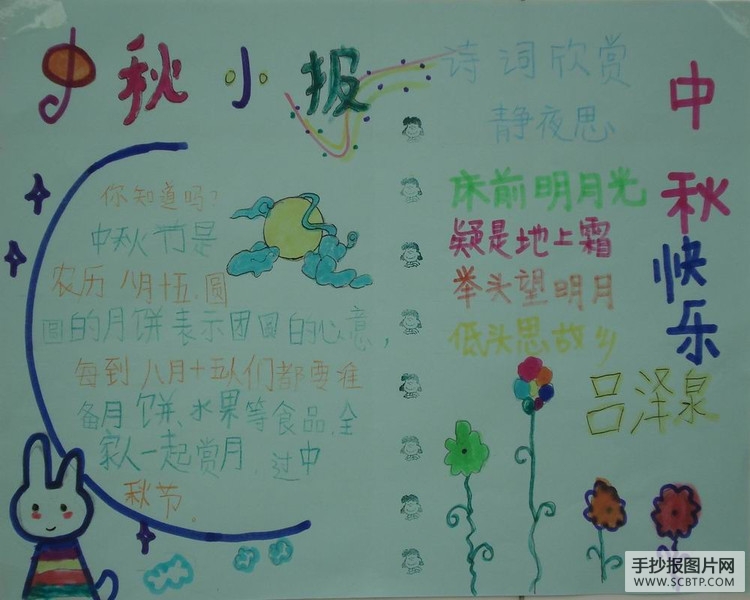 中秋小报
你知道吗?
中秋节是
农历八月十五,圆
圆的月饼表示团圆的心意,
每到八月十五人们都要准
备月饼、水果等食品,全
家人一起赏月,过中
秋节.
诗词欣赏
静夜思
床前明月光
疑是地上霜
举头望明月
低头思故乡
中
秋
快
乐
吕泽泉
手抄报图片网
WWW.SCBTP.COM